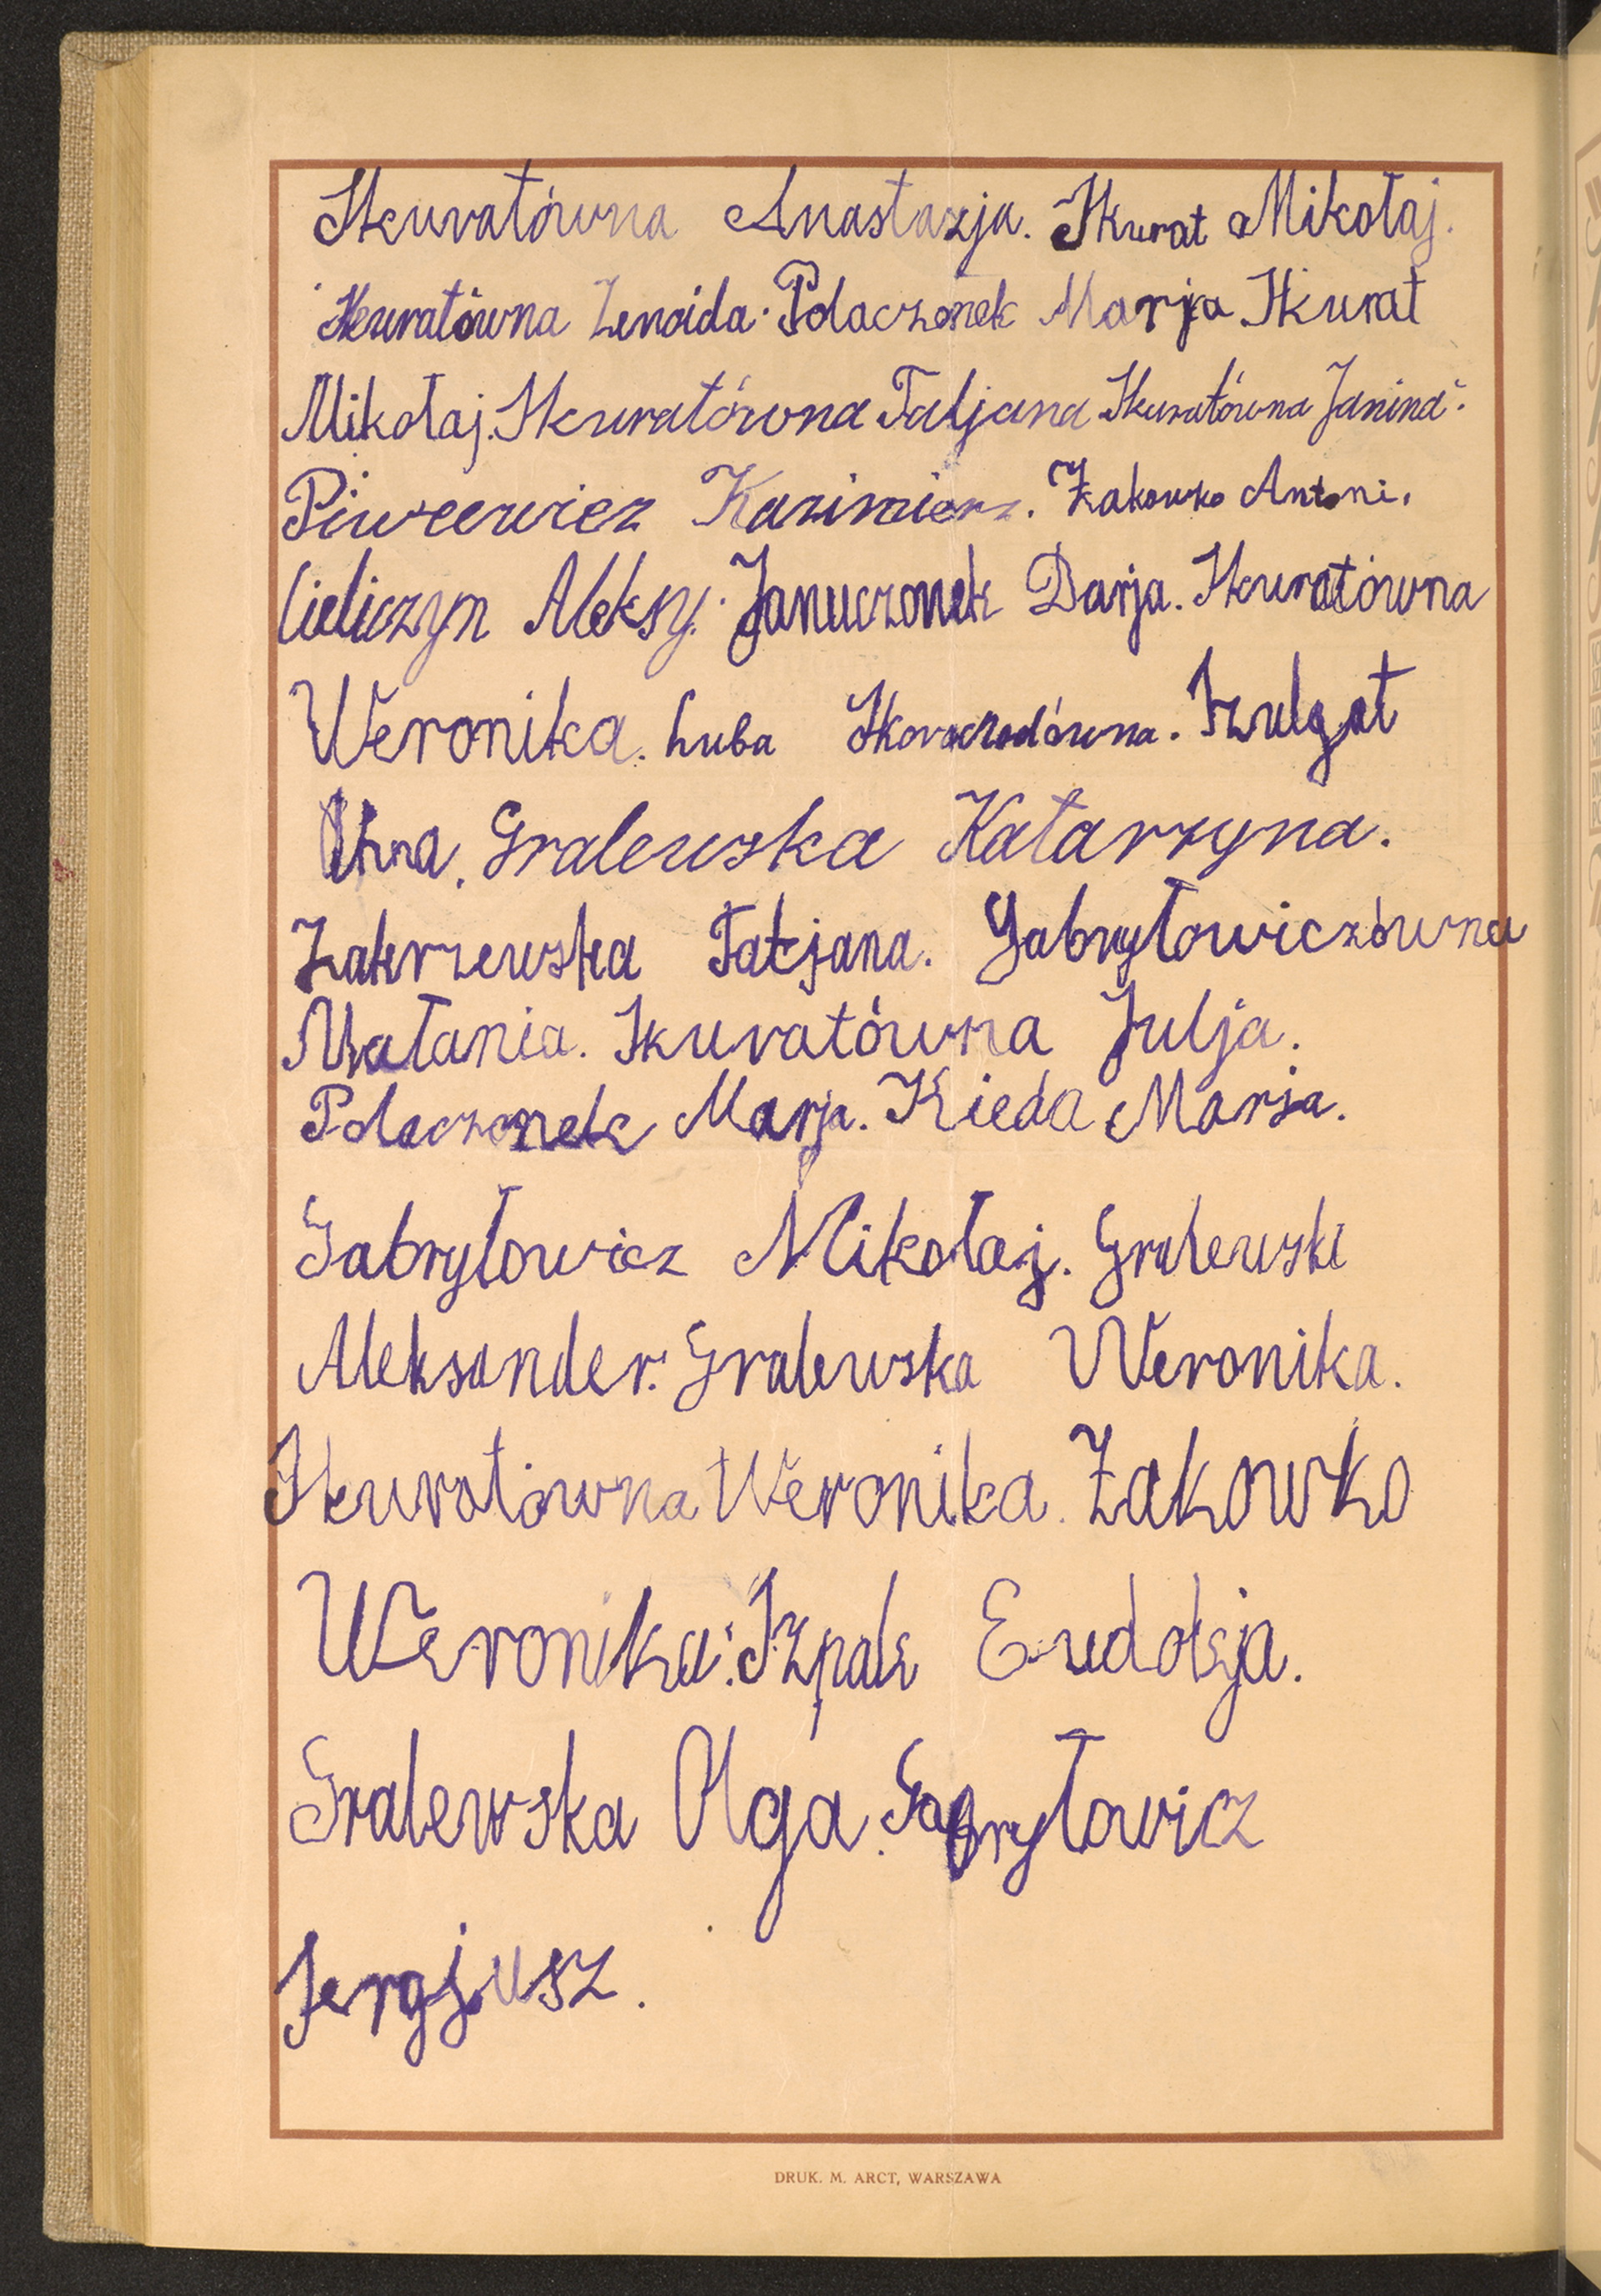 Skuratówna Anastazja. Skurat Mikołaj.
Skuratówna Zenoida. Polaczonek Marja Skurat
Mikołaj. Skuratówna Tatjana Skuratówna Janina.
Kazimierz. Żakowko Antoni.
Cieliczyn Aleksy. Januczonek Darja. Skuratówna
Weronika. Luba Szulgat
Anna. Gralewska Katarzyna.
Zakrzewska Tatjana. Gabryłowiczówna
Małania. Skuratówna Julja.
Polaczonek Marja. Kieda Marja.
Gabryłowicz Mikołaj. Gralewski
Aleksander. Gralewska Weronika.
Skuratówna Weronika. Żakowko
Weronika. Szpak Eudokja.
Gralewska Olga. Gabryłowicz
Sergjusz.
DRUK. M. ARCT, WARSZAWA